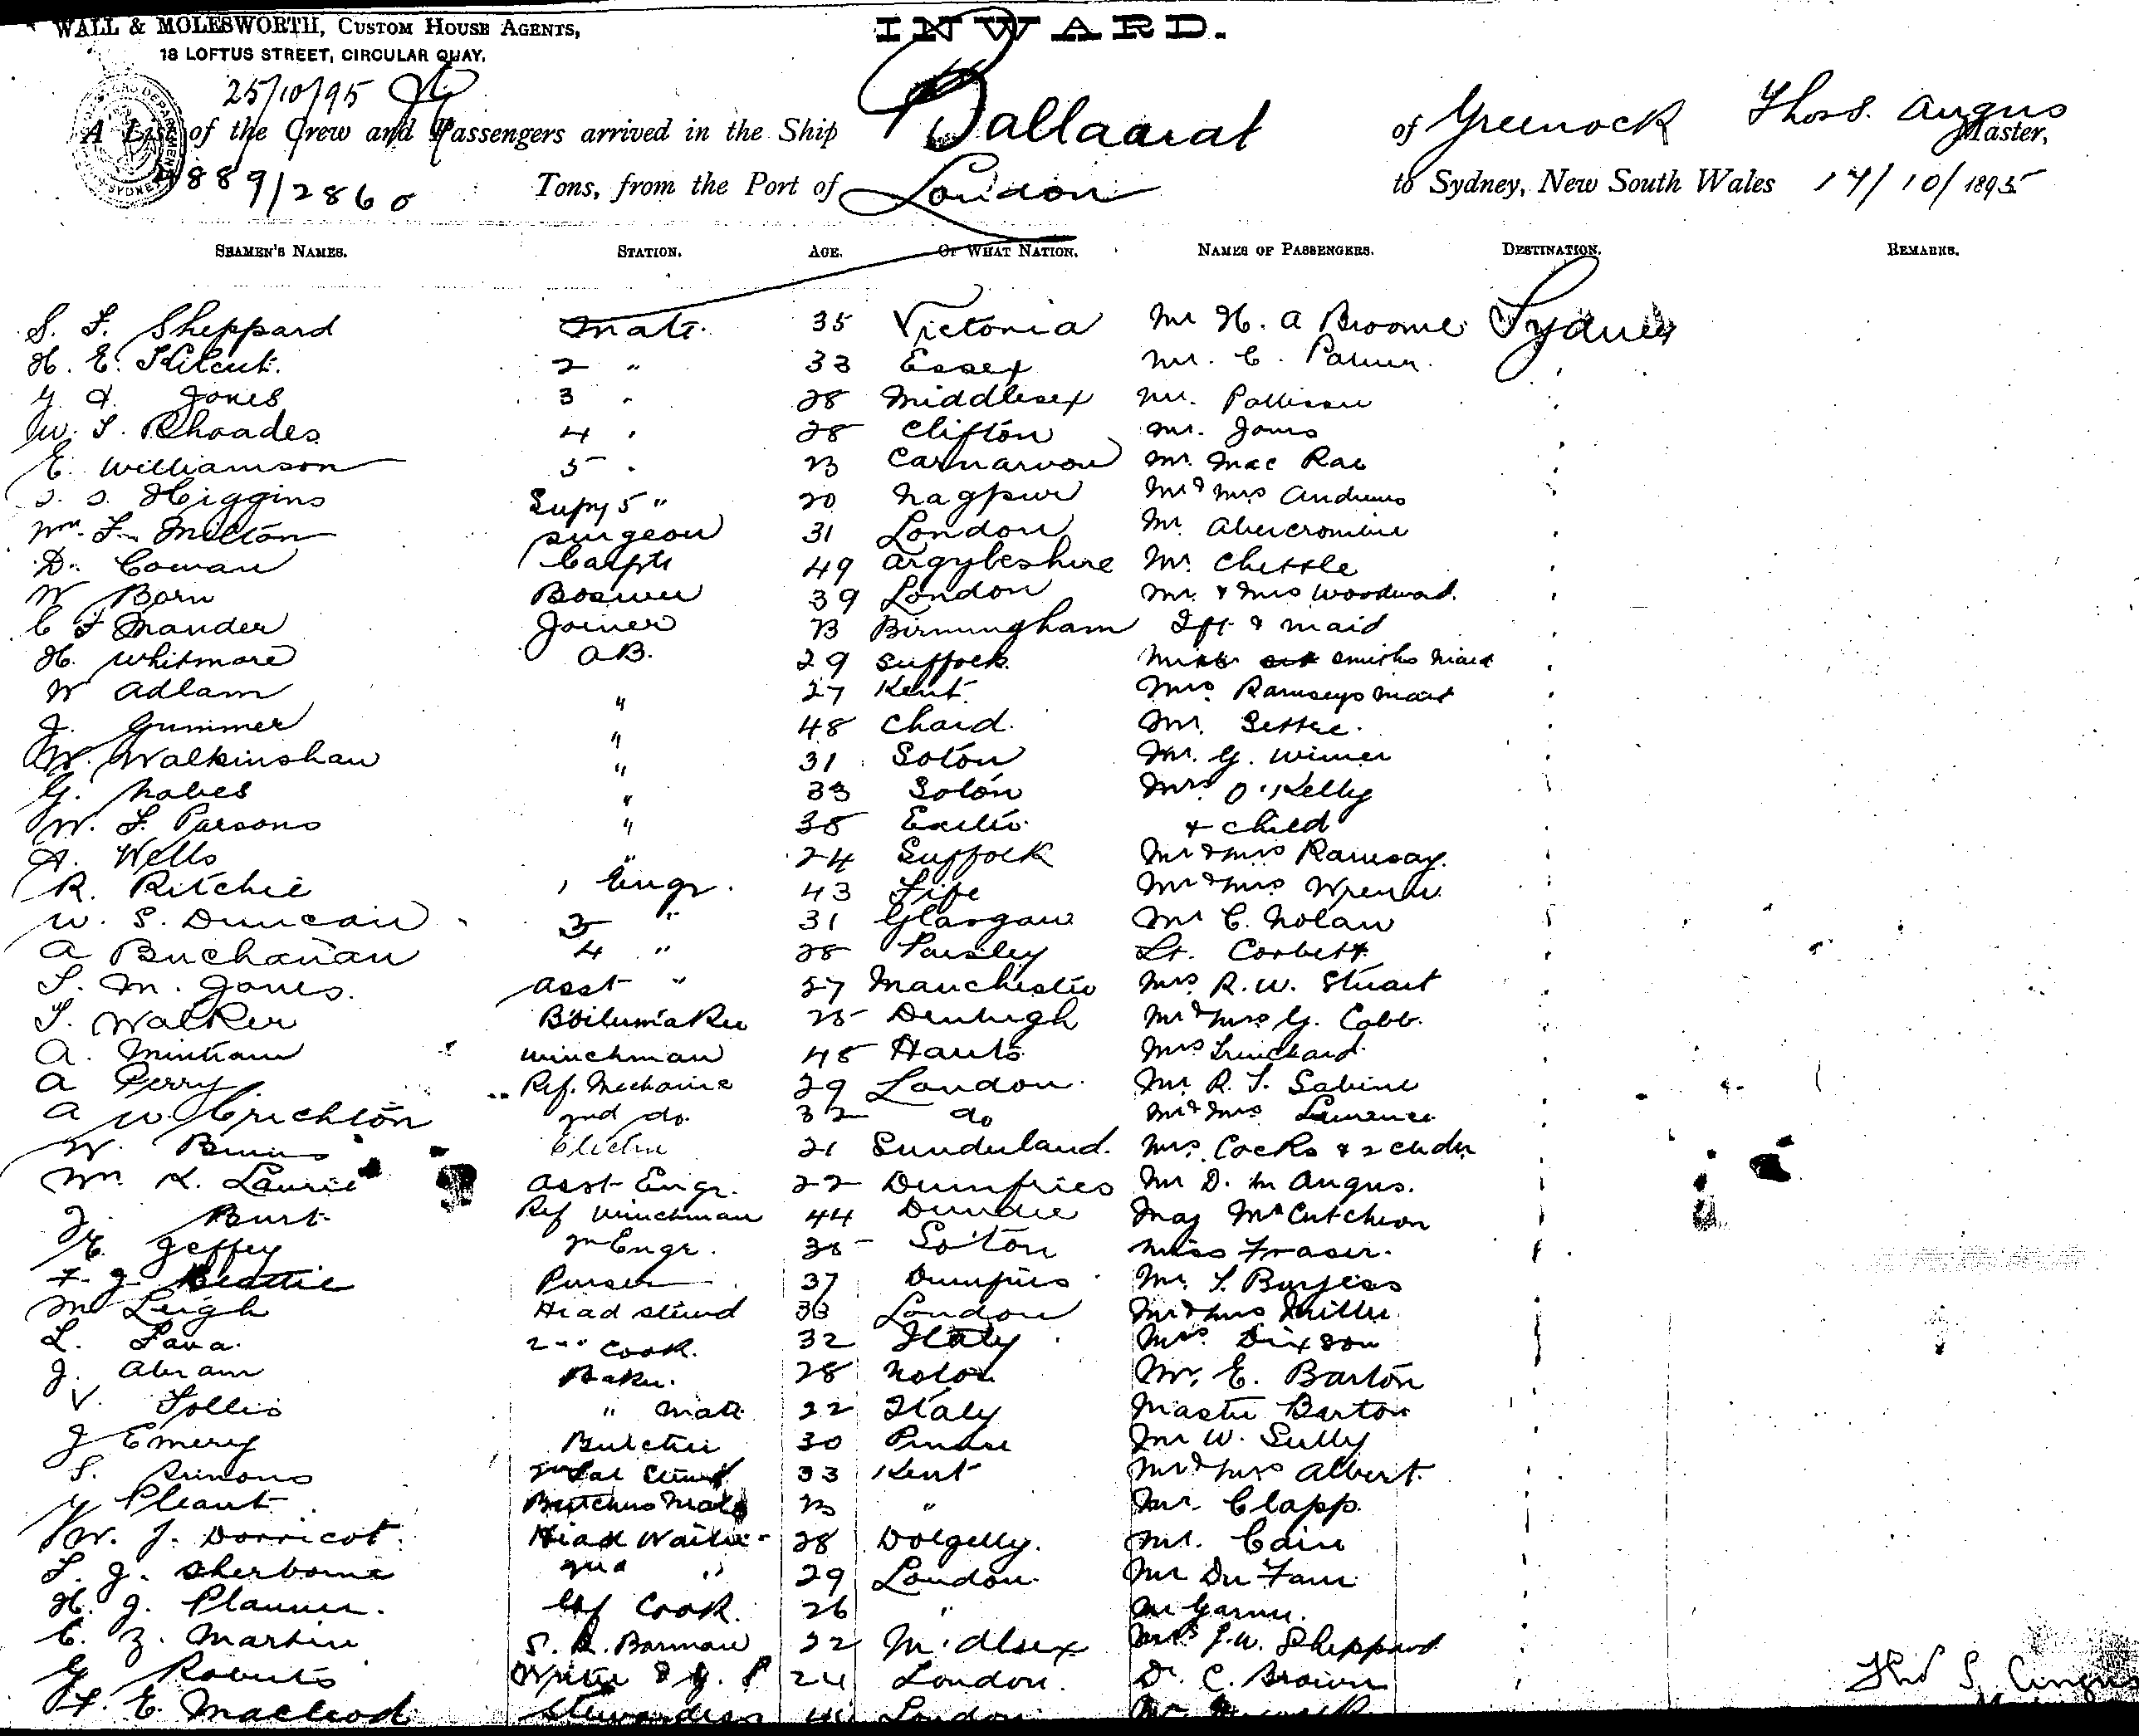 WALL & MOLESWORTH, CUSTOM HOUSE AGENTS,
18 LOFTUS STREET, CIRCULAR QUAY.
INWARD.
25/10/95
A List of the Crew and Passengers arrived in the Ship Ballaarat of Greenock Thos. S. Angus Master,
4889/2860 Tons, from the Port of London to Sydney, New South Wales 17/10/1895
SEAMEN'S NAMES. STATION. AGE. OF WHAT NATION. NAMES OF PASSENGERS. DESTINATION. REMARKS.
S. F. Sheppard Mate. 35 Victoria Mr H. A Broome Sydney
H. E. 2 " 33 Essex Mr. C. Palmer
Jones 3 " 28 Middlesex Mr. Pattison
W. S. Rhoades 4 " 28 Clifton Mr. Jones
E. Williamson 5 " 23 Carnarvon Mr. Mac Rae
S. S. Higgins Supy 5 " 20 Nagpur Mr & Mrs Andrews
Wm. F. Milton Surgeon 31 London Mr. Abercrombie
D. Cowan Carptr 49 Argyleshire Mr. Chettle
W Barn Boswn 39 London Mr. & Mrs Woodward.
C F Mander Joiner 23 Birmingham Ift & maid
H. Whitmore A.B. 29 Suffolk Smiths maid
W Adlam " 27 Kent Mrs. Ramseys maid
J. Gummer " 48 Chard. Mr.
W. Walkinshaw " 31 Soton Mr. G. Winer
G. Nabes " 33 Soton Mrs O'Kelly
W. F. Parsons " 35 Exeter & child
A. Wells " 24 Suffolk Mr & Mrs Ramsay.
R. Ritchie 1 Engr. 43 Fife Mr & Mrs Wrenn
W. S. Duncan 3 " 31 Glasgow Mr C. Nolan
A Buchanan 4 " 28 Paisley Lt. Corbett
S. M. Jones. Asst " 27 Manchester Mrs. R. W. Stuart
T. Walker Boilermaker 25 Denbigh Mr & Mrs G. Cobb.
A. Mintram Winchman 45 Hants Mrs Trenchard
A Perry Ref. Mechanic 29 London Mr R. T. Sabine
A W. Crichton 2nd do. 32 do Mr & Mrs Laurence
W. Binns Electrn 21 Sunderland. Mrs. Cocks & 2 chdn
Wm. K. Laurie Asst Engr. 22 Dumfries Mr D. M Angus.
J. Burt Ref Winchman 44 Dundee Maj McCutcheon
Jeffey 2n Engr. 35 So'ton Miss Fraser.
F. J. Beattie Purser 37 Dumfries Mr. T. Burgess
M Leigh Head steward 33 London Mr & Mrs Miller
L. Fava. 2nd Cook. 32 Italy Mrs. Dixson
J. Abram Baker. 28 Mr. E. Barton
V. Tollis " Mate 22 Italy Master Barton
J Emery Butcher 30 Mr W. Sully
S. Simons 2nd Sal Stewd 33 Kent Mr & Mrs Albert.
Pleant Butchers Mate 23 " Mr. Clapp.
W. J. Dorricot. Head Waiter 28 Dolgelly. Mr. Cain
T. J. Sherborne 2nd " 29 London. Mr Du Faur
H. J. Planner. Cook. 26 " Mr Garner.
C. Z. Martin S. R. Barman 22 Midlsex Mrs J. W. Sheppard
G Roberts Writer 24 London. Dr. C. Brown
F. E. Macleod Stewardess London
Thos S. Angus